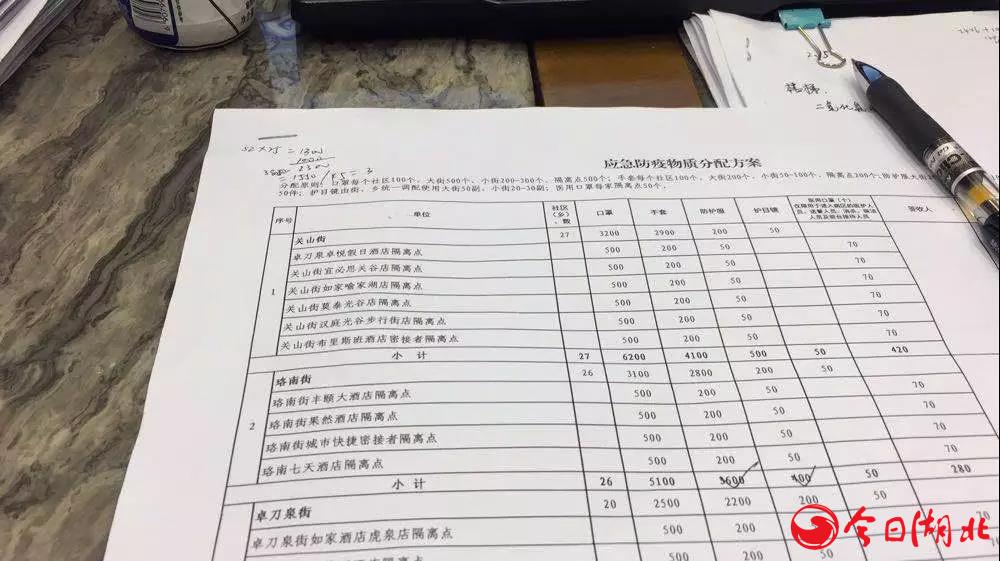 应急防疫物质分配方案
分配原则：口罩每个社区100个、大街500个、小街200-300个、隔离点500个；手套每个社区100个、大街200个、小街50-100个、隔离点200个；防护服大街200
50件；护目镜由街、乡统一调配使用大街50副、小街20-30副；医用口罩每家隔离点50个。
序号 单位 社区（乡）数 口罩 手套 防护服 护目镜 医用口罩（个） 签收人
关山街 27 3200 2900 200 50
卓刀泉卓悦假日酒店隔离点 500 200 50 70
关山街宜必思关谷店隔离点 500 200 50 70
1 关山街如家喻家湖店隔离点 500 200 50 70
关山街莫泰光谷店隔离点 500 200 50 70
关山街汉庭光谷步行街店隔离点 500 200 50 70
关山街布里斯班酒店密接者隔离点 500 200 50 70
小 计 27 6200 4100 500 50 420
珞南街 26 3100 2800 200 50
珞南街丰颐大酒店隔离点 500 200 50 70
2 珞南街果然酒店隔离点 500 200 50 70
珞南街城市快捷密接者隔离点 500 200 50 70
珞南七天酒店隔离点 500 200 50 70
小 计 26 5100 3600 400 50 280
卓刀泉街 20 2500 2200 200 50
卓刀泉街如家酒店虎泉店隔离点 500 200
500 200
今日湖北